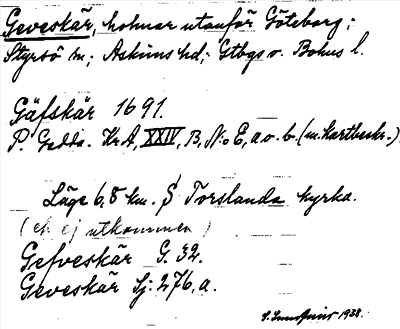 Geveskär, holmar utanför Göteborg;
Styrsö sn; Askims hd; Gtbgs o. Bohus l.
Gäfskär 1691.
P. Gedda. KrA, XXIV, B, No E, a o. b. (m. kartbeskr.).
Läge 6,8 km. S Torslanda kyrka.
(ek. ej utkommen)
Gefveskär G. 32.
Geveskär Sj: 276, a.
1938.